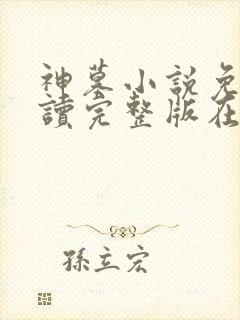 神墓小說免
讀完整版在
孫立宏